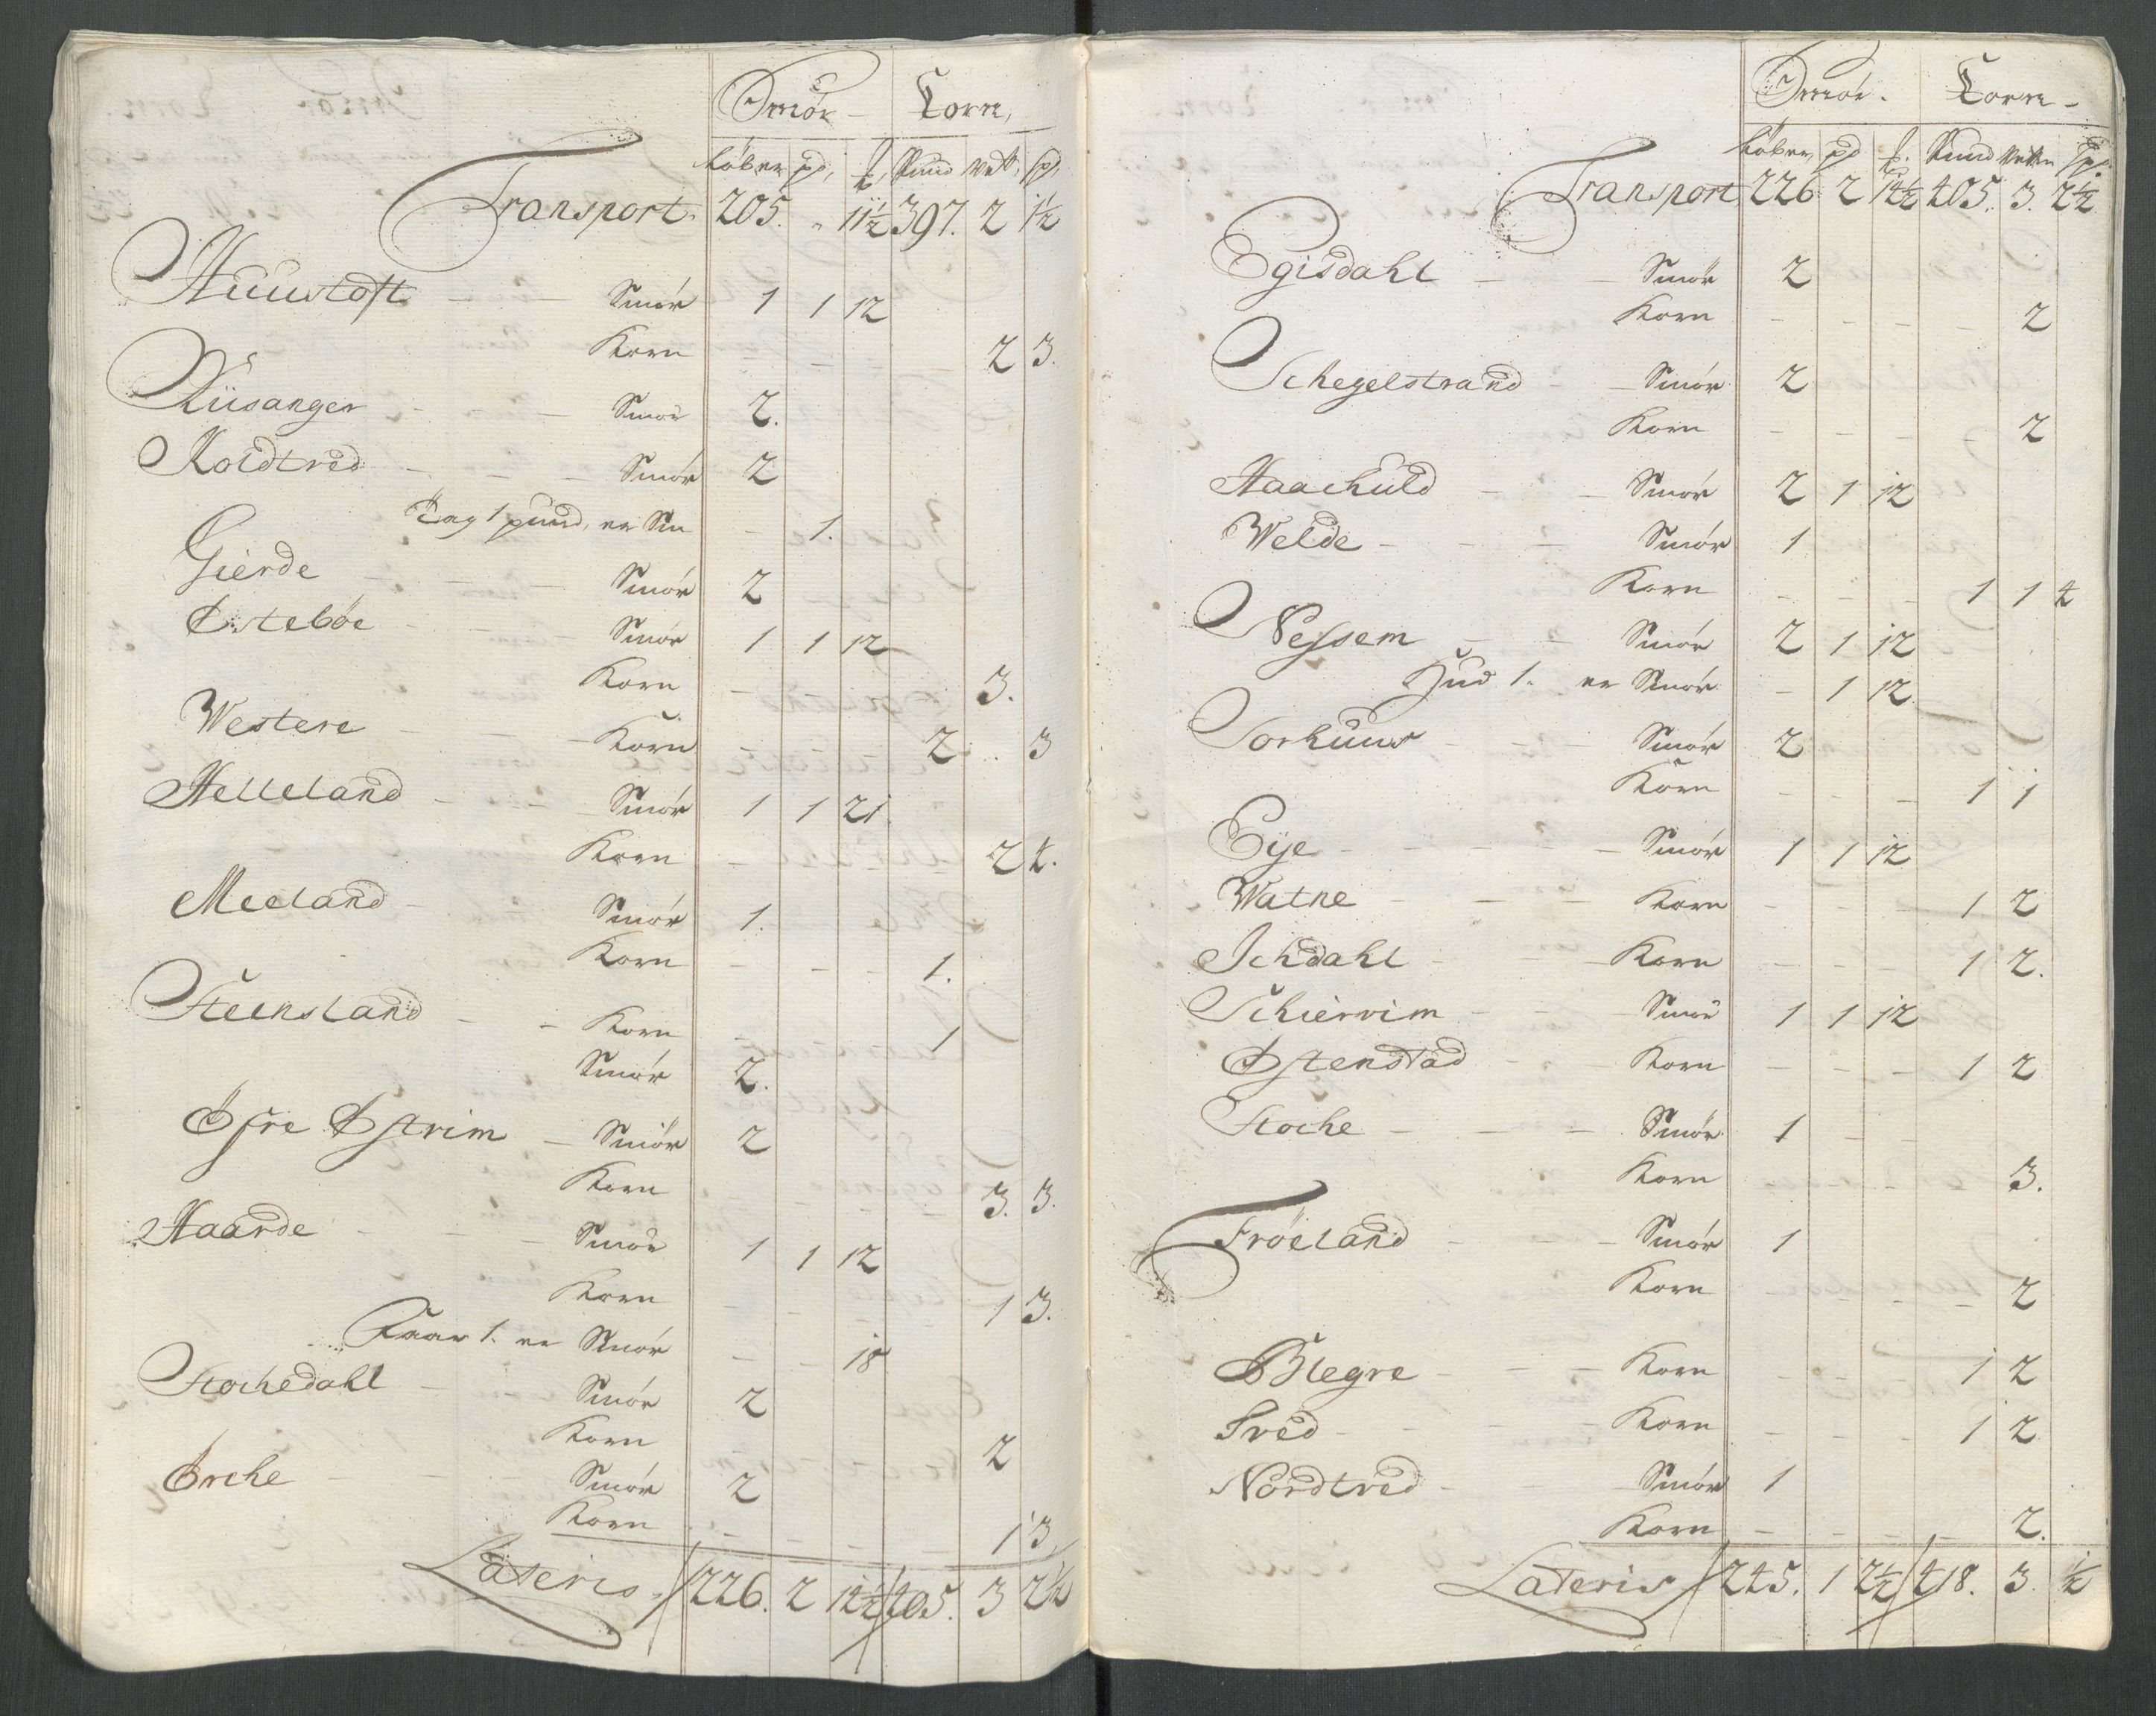 Smör Korn,
Löber pd, ℔, Pund Wett, Sp,
Transport. 205. " 11½ 397. 2 1½
Huustoft Smör 1 1 12
Korn 2 3.
Riisanger Smör 2.
Koldtred Smör 2
Tag 1 pund, er Sm 1.
Gierde Smör 2
Østebøe Smör 1 1 12
Korn 3.
Westere Korn 2 3
Helleland Smör 1 1 21
Korn 2 4.
Meeland Smör 1.
Korn 1.
Steensland Korn 1
Smör 2.
Øfre Østrim Smör 2
Korn 3. 3.
Haarde Smör 1 1 12
Korn 1 3.
1. er Smör 18
Stochedahl Smör 2
Korn 2
Ørche Smör 2
Korn 1 3
Lateris 226. 2 14½ 405. 3 2½
Smör. Korn
Löber, pd ℔. Pund Wetten Sp
Transport 226 2 14½ 405. 3. 2½
Egisdahl Smör 2
Korn 2
Schegelstrand Smör 2
Korn 2
Haachuld Smör 2 1 12
Welde Smör 1
Korn 1 1 4
Nessem Smör 2 1 12
Hud 1. er Smör 1 12
Sorhuus Smör 2
Korn 1 1
Eije Smör 1 1 12
Watne Korn 1 2
Ichdahl Korn 1 2.
Schiervim Smör 1 1 12
Østenstad Korn 1 2
Stoche Smör 1
Korn 3.
Fröeland Smör 1
Korn 2
Blegre Korn 1 2
Tved Korn 1 2
Nordtved Smör 1
Korn 2.
Lateris 245. 1 2½ 418. 3. ½